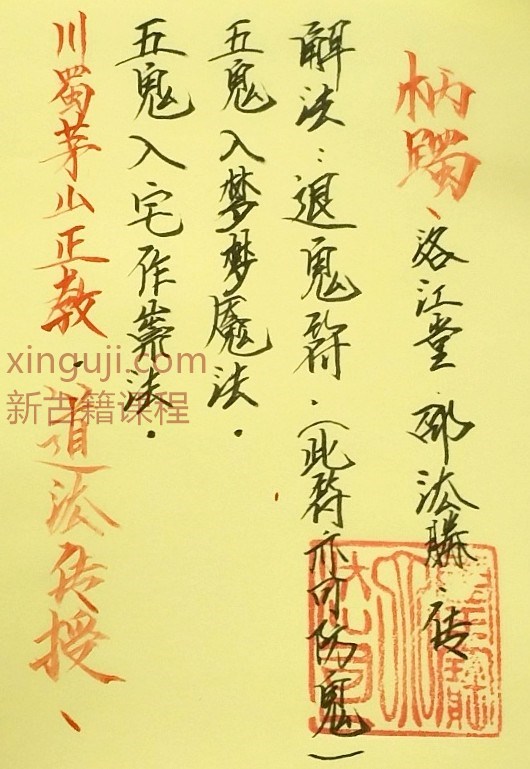 洛江堂 邵汯勝、传
解法：退鬼符．（此符亦可防鬼）
五鬼入梦梦魔法．
五鬼入宅作祟法．
川蜀茅山正教．道汯传授、
xinguji.com
新古籍课程